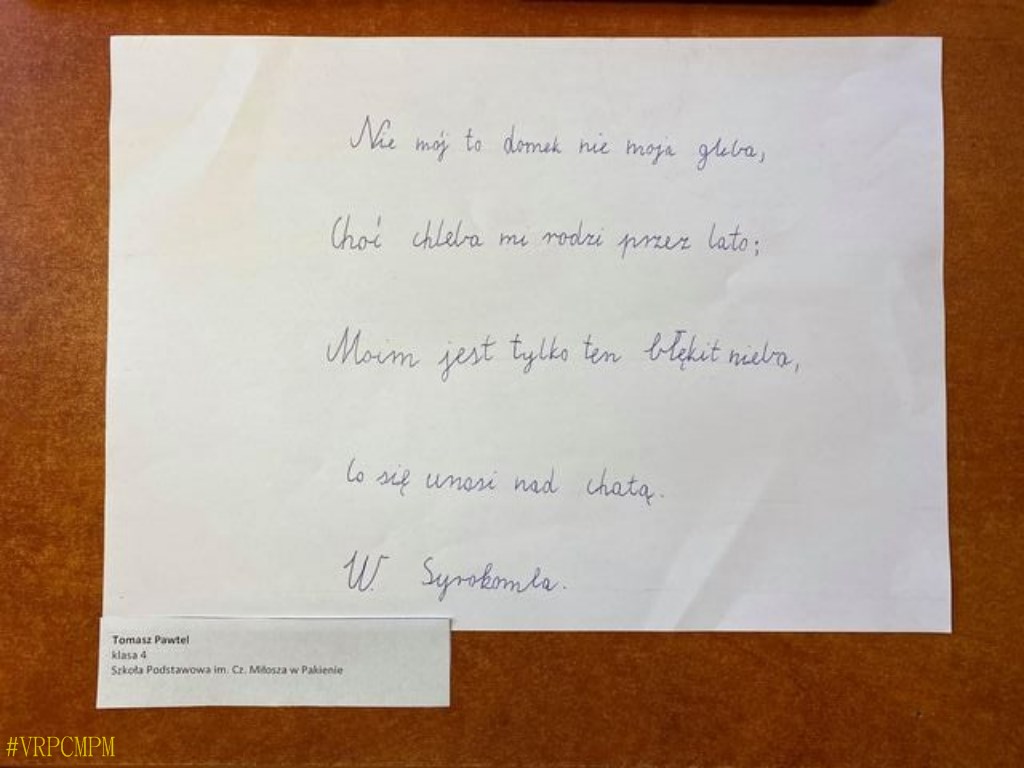 Nie mój to domek nie moja gleba,
Choć chleba mi rodzi przez lato;
Moim jest tylko ten błękit nieba,
Co się unosi nad chatą.
W. Syrokomla.
Tomasz Pawtel
klasa 4
Szkoła Podstawowa im. Cz. Miłosza w Pakienie
#VRPCMPM